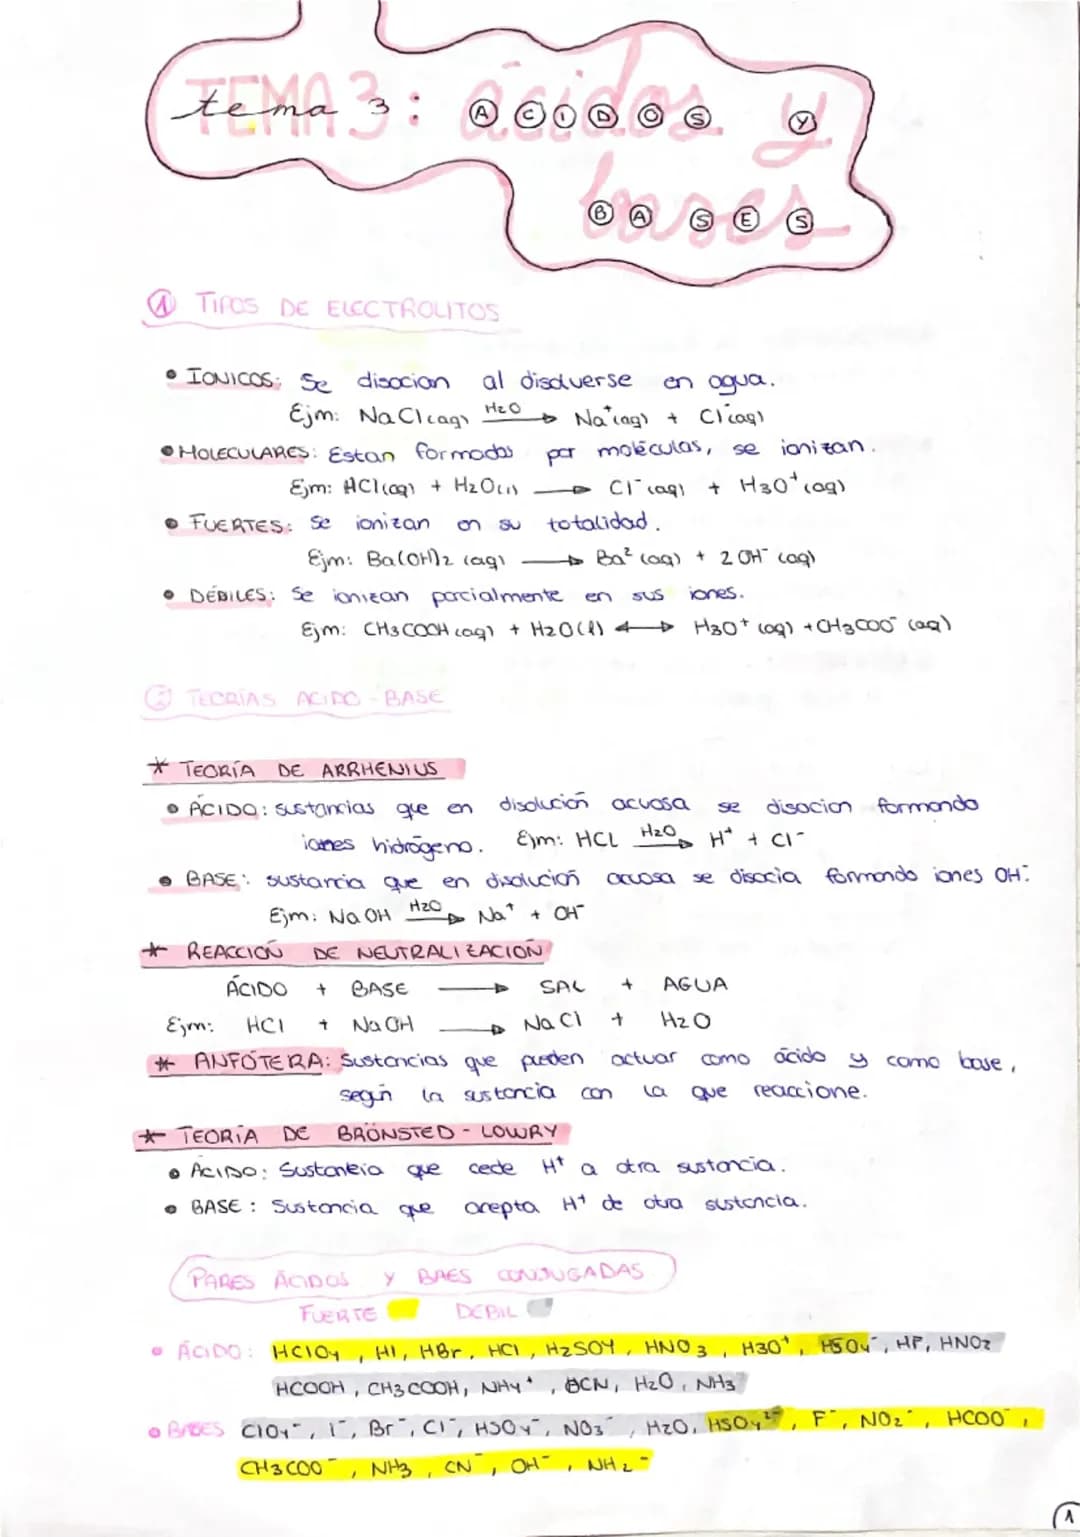 tema 3: ACIDOS Y
BASES
① TIPOS DE ELECTROLITOS
• IONICOS: Se disocian al disolverse en agua.
Ejm: NaCl(aq) H₂O→ Na⁺(aq) + Cl⁻(aq)
• MOLECULARES: Estan formados por moléculas, se ionizan.
Ejm: HCl(aq) + H₂O(l) → Cl⁻(aq) + H₃O⁺(aq)
• FUERTES: Se ionizan en su totalidad.
Ejm: Ba(OH)₂ (aq) → Ba² (aq) + 2 OH⁻ (aq)
• DÉBILES: Se ionizan parcialmente en sus iones.
Ejm: CH₃COOH(aq) + H₂O(l) ↔ H₃O⁺ (aq) + CH₃COO⁻ (aq)
② TEORÍAS ACIDO-BASE
* TEORÍA DE ARRHENIUS
• ÁCIDO: sustancias que en disolución acuosa se disocian formando
iones hidrógeno. Ejm: HCL H₂O→ H⁺ + Cl⁻
• BASE: sustancia que en disolución acuosa se disocia formando iones OH⁻.
Ejm: NaOH H₂O→ Na⁺ + OH⁻
* REACCIÓN DE NEUTRALIZACIÓN
ÁCIDO + BASE → SAL + AGUA
Ejm: HCl + NaOH → NaCl + H₂O
* ANFÓTERA: Sustancias que pueden actuar como ácido y como base,
según la sustancia con la que reaccione.
* TEORÍA DE BRÖNSTED-LOWRY
• ÁCIDO: Sustancia que cede H⁺ a otra sustancia.
• BASE: Sustancia que acepta H⁺ de otra sustancia.
PARES ÁCIDOS Y BAES CONJUGADAS
FUERTE DEBIL
• ÁCIDO: HClO₄, HI, HBr, HCl, H₂SO₄, HNO₃, H₃O⁺, HSO₄⁻, HF, HNO₂
HCOOH, CH₃COOH, NH₄⁺, HCN, H₂O, NH₃
• BASES ClO₄⁻, I⁻, Br⁻, Cl⁻, HSO₄⁻, NO₃⁻, H₂O, HSO₄²⁻, F⁻, NO₂⁻, HCOO⁻,
CH₃COO⁻, NH₃, CN⁻, OH⁻, NH₂⁻
1